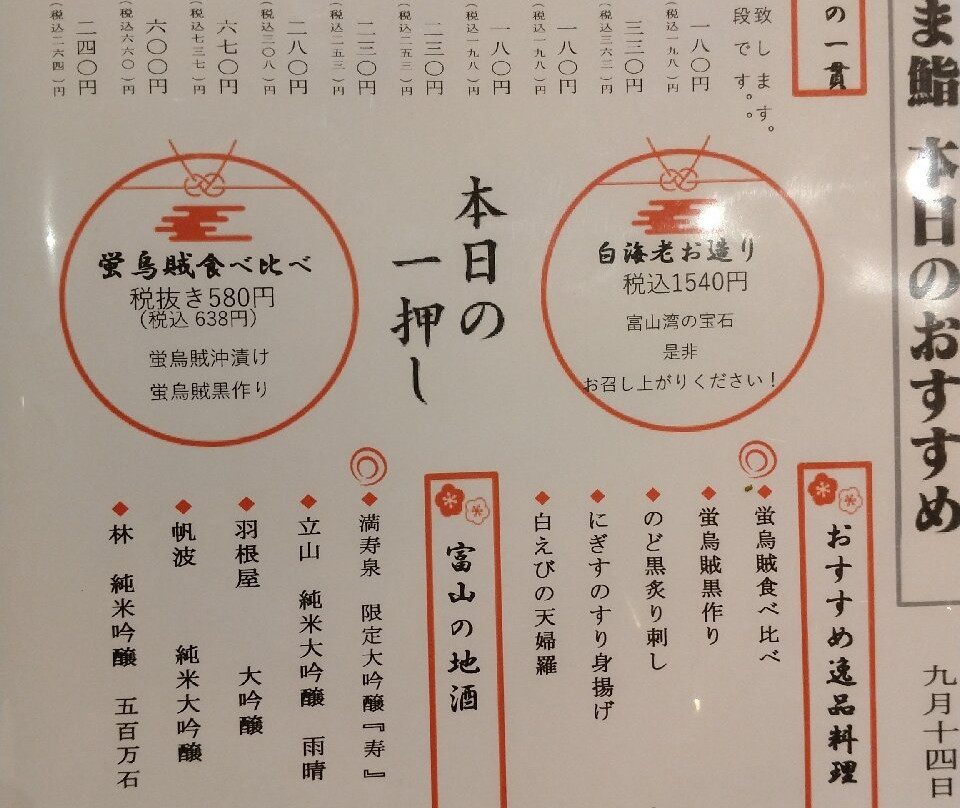 ま鮨 本日のおすすめ
九月十四日
の一貫
致します。
段です。
一八〇円
(税込一九八)円
三三〇円
(税込三六三)円
一八〇円
(税込一九八)円
一八〇円
(税込一九八)円
二三〇円
(税込二五三)円
二三〇円
(税込二五三)円
二八〇円
(税込三〇八)円
六七〇円
(税込七三七)円
六〇〇円
(税込六六〇)円
二四〇円
(税込二六四)円
白海老お造り
税込1540円
富山湾の宝石
是非
お召し上がりください!
本日の
一押し
蛍烏賊食べ比べ
税抜き580円
(税込 638円)
蛍烏賊沖漬け
蛍烏賊黒作り
おすすめ逸品料理
蛍烏賊食べ比べ
蛍烏賊黒作り
のど黒炙り刺し
にぎすのすり身揚げ
白えびの天婦羅
富山の地酒
満寿泉 限定大吟醸『寿』
立山 純米大吟醸 雨晴
羽根屋 大吟醸
帆波 純米大吟醸
林 純米吟醸 五百万石